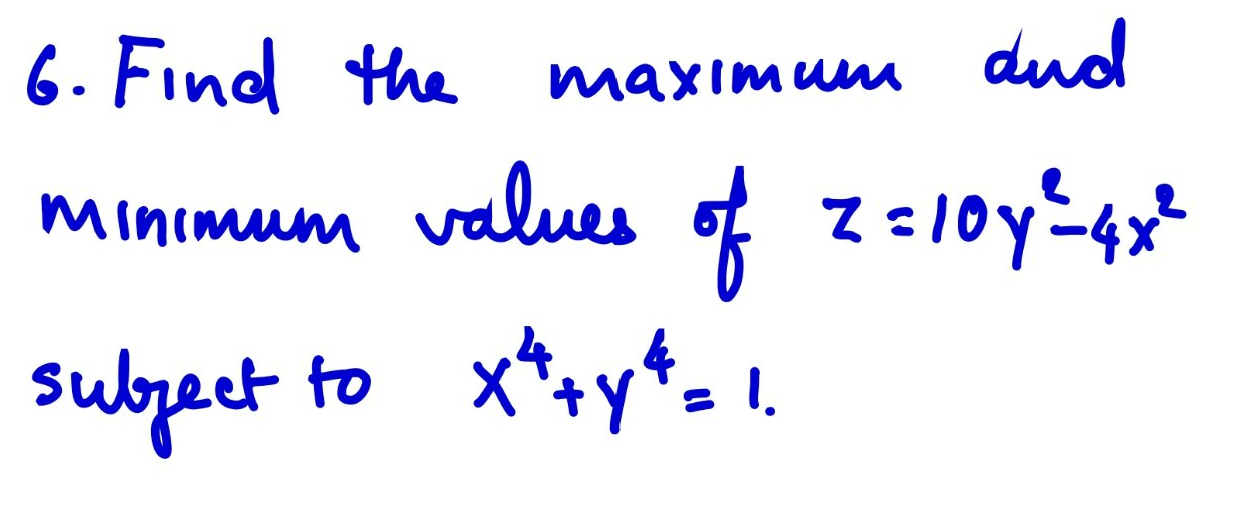 6. Find the maximum and
minimum values of z = 10y² - 4x²
subject to x⁴ + y⁴ = 1.